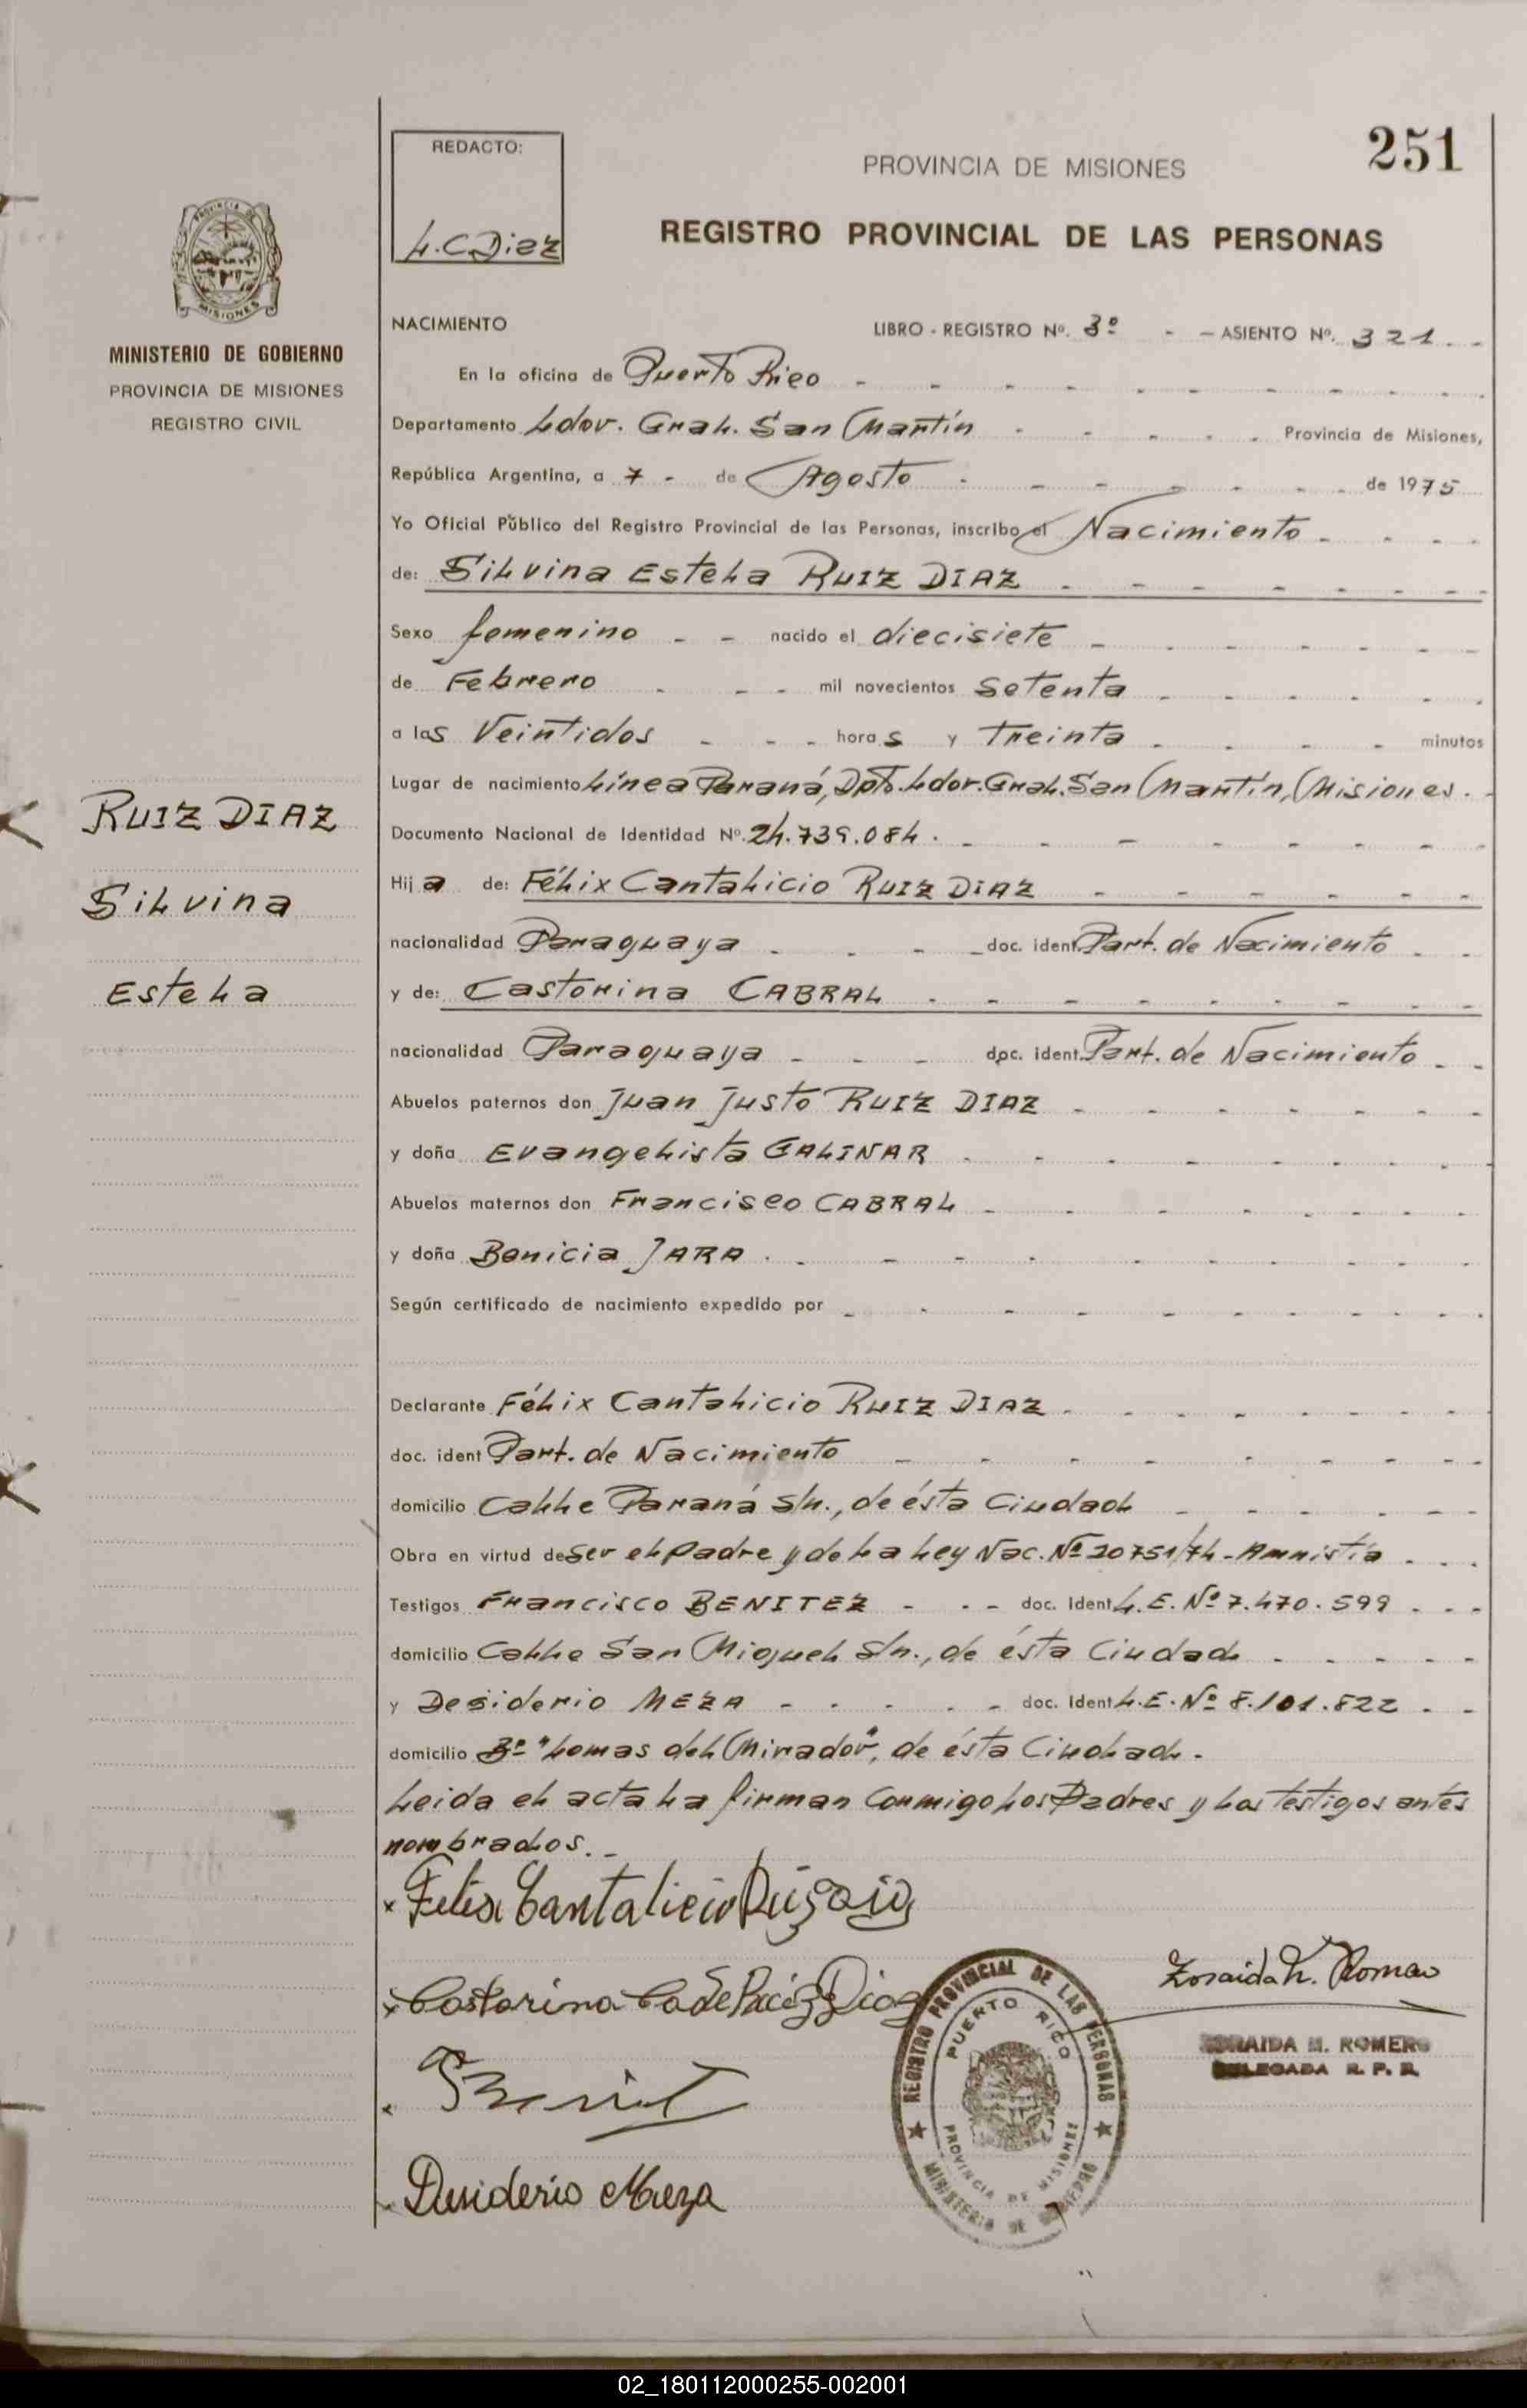 251
REDACTO:
L.C Diaz
PROVINCIA DE MISIONES
REGISTRO PROVINCIAL DE LAS PERSONAS
PROVINCIA DE MISIONES
MINISTERIO DE GOBIERNO
PROVINCIA DE MISIONES
REGISTRO CIVIL
RUIZ DIAZ
Silvina
Estela
NACIMIENTO LIBRO - REGISTRO Nº. 3º - - ASIENTO Nº. 321 . -
En la oficina de Puerto Rico
Departamento Ldor. Gral. San Martín Provincia de Misiones,
República Argentina, a 7 - de Agosto de 1975
Yo Oficial Público del Registro Provincial de las Personas, inscribo el Nacimiento
de: Silvina Estela RUIZ DIAZ
Sexo femenino - - nacido el diecisiete
de Febrero mil novecientos setenta
a las Veintidos horas y treinta minutos
Lugar de nacimiento Línea Paraná, Dpto. Ldor. Gral. San Martín, Misiones.
Documento Nacional de Identidad Nº. 24.739.084.
Hija de: Félix Cantalicio RUIZ DIAZ
nacionalidad Paraguaya doc. ident. Part. de Nacimiento
y de: Castorina CABRAL
nacionalidad Paraguaya doc. ident. Part. de Nacimiento
Abuelos paternos don Juan Justo RUIZ DIAZ
y doña Evangelista GALINAR
Abuelos maternos don Francisco CABRAL
y doña Benicia JARA
Según certificado de nacimiento expedido por
Declarante Félix Cantalicio RUIZ DIAZ
doc. ident Part. de Nacimiento
domicilio Calle Paraná s/n., de ésta Ciudad
Obra en virtud de ser el padre y de la Ley Nac. Nº 20751/74 - Amnistía
Testigos Francisco BENITEZ doc. ident L.E. Nº 7.470.599
domicilio Calle San Miguel s/n., de ésta Ciudad
y Desiderio MEZA doc. ident L.E. Nº 8.101.822
domicilio Bº "Lomas del Mirador", de ésta Ciudad.
Leida el acta la firman conmigo los Padres y los testigos antes
nombrados. -
x Felix Cantalicio
x Castorina Ca de Ruiz Diaz
Desiderio Meza
Zoraida M. Romero
ZORAIDA M. ROMERO
DELEGADA R. P. P.
REGISTRO PROVINCIAL DE LAS PERSONAS
PUERTO RICO
PROVINCIA DE MISIONES
MINISTERIO DE GOBIERNO
02_180112000255-002001